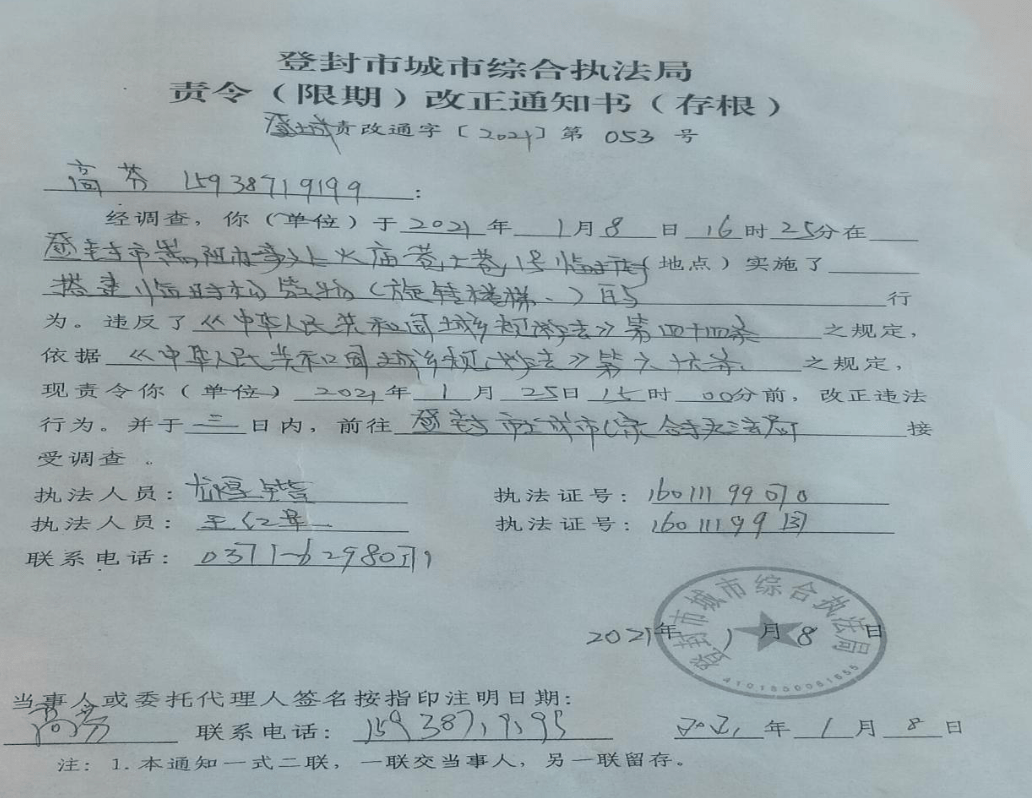 登封市城市综合执法局
责令（限期）改正通知书（存根）
登城责改通字〔2021〕第 053 号
高芬 15938719199：
经调查，你（单位）于2021年1月8日16时25分在
登封市嵩阳办事处火庙巷 1号临街（地点）实施了
搭建临时构筑物（旋转楼梯）的行
为。违反了《中华人民共和国城乡规划法》第四十四条之规定，
依据《中华人民共和国城乡规划法》第六十六条之规定，
现责令你（单位）2021年1月25日15时00分前，改正违法
行为。并于三日内，前往登封市城市综合执法局接
受调查。
执法人员： 执法证号：
执法人员：王 执法证号：
联系电话：0371-62980
2021年1月8日
登封市城市综合执法局
当事人或委托代理人签名按指印注明日期：
高芬 联系电话： 2021年1月8日
注：1.本通知一式二联，一联交当事人，另一联留存。